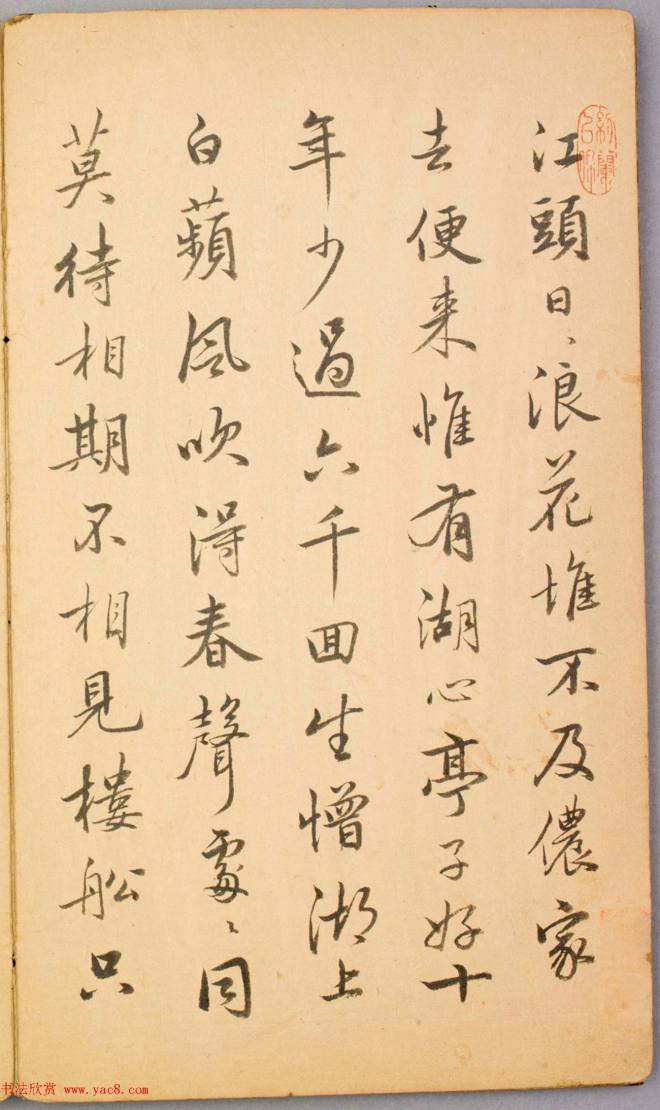 江頭日〻浪花堆不及儂家
去便来惟有湖心亭子好十
年少過六千回生憎湖上
白蘋風吹得春聲處〻同
莫待相期不相見樓船只
书法欣赏 www.yac8.com